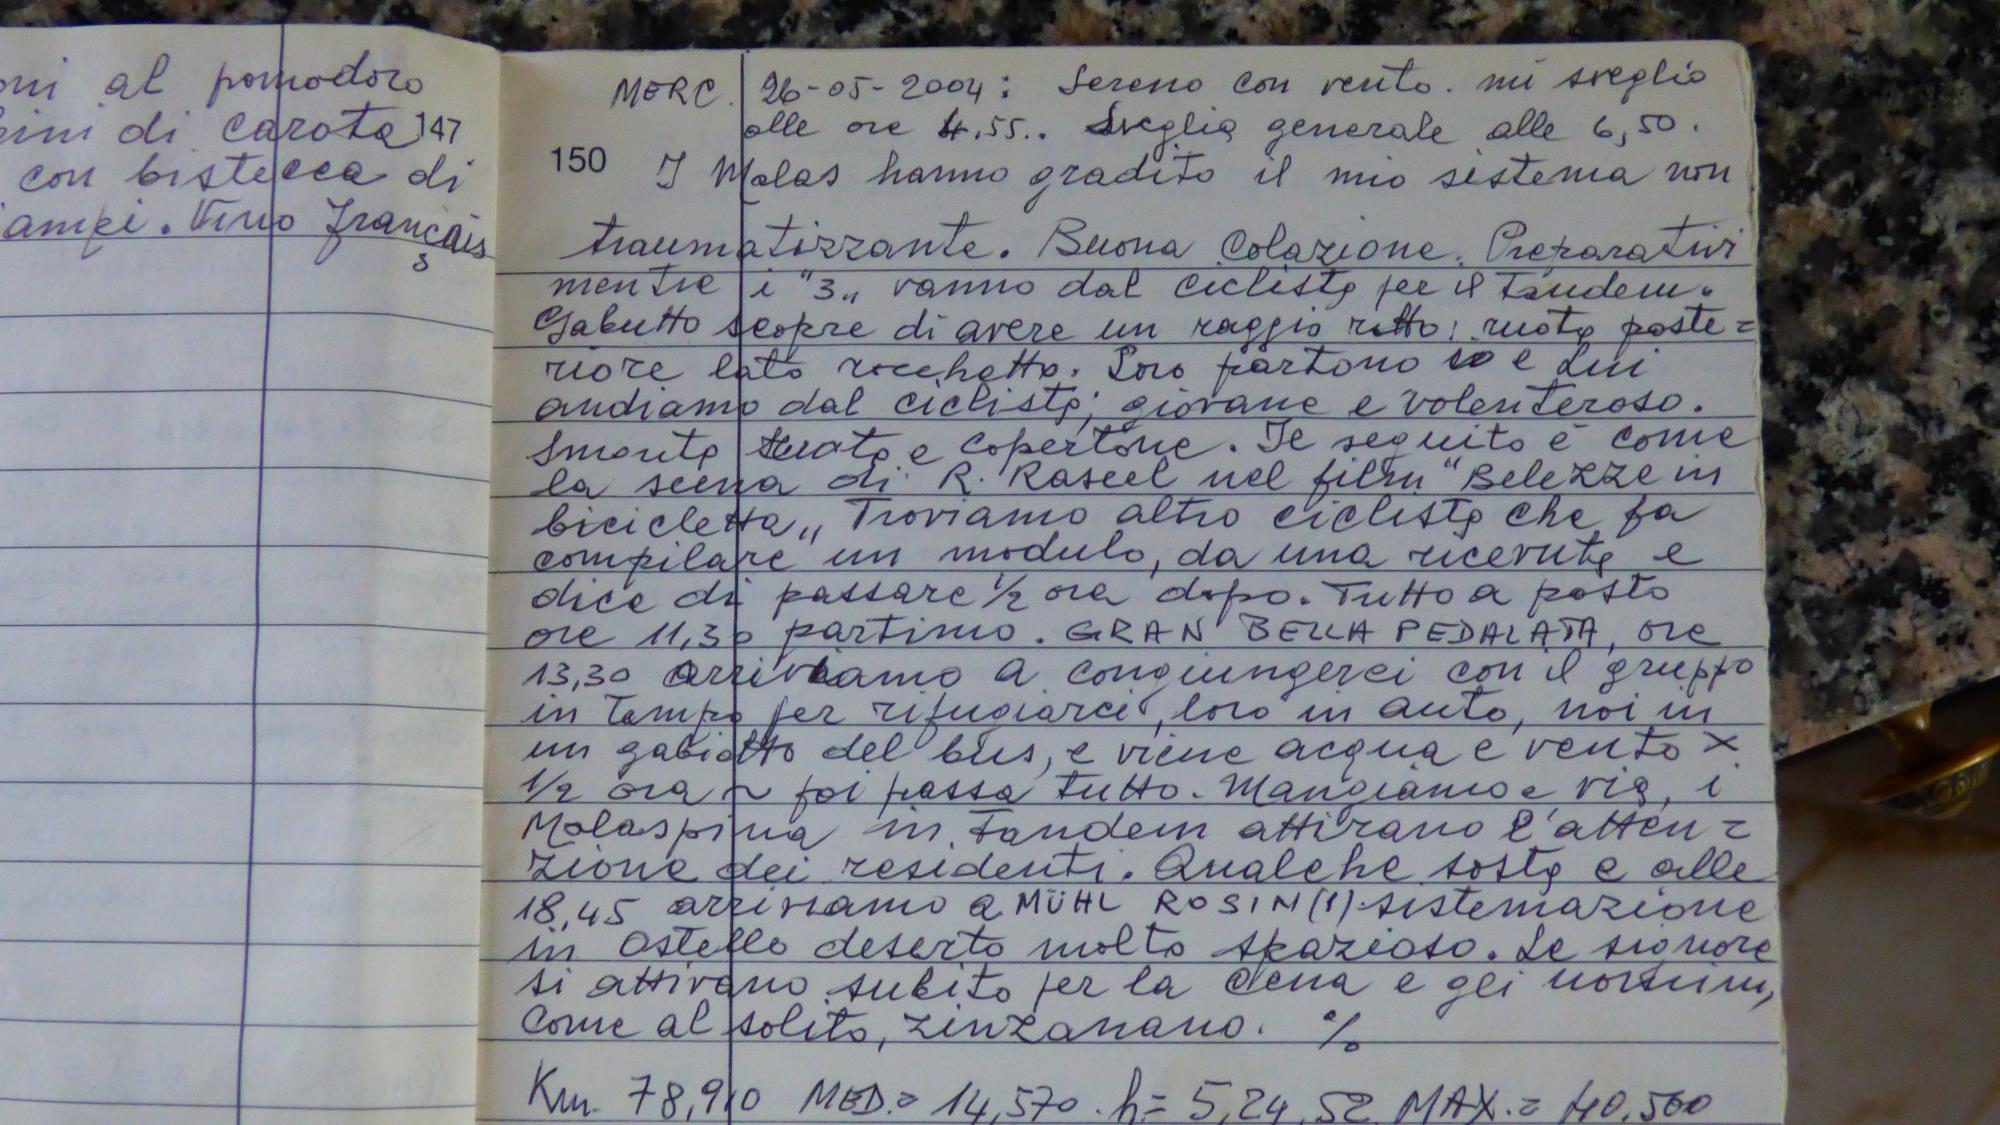 oni al pomodoro
di carota 147
con bistecca di
ampi. Vino français
MERC. 26-05-2004: Sereno con vento. mi sveglio
alle ore 4.55.. Sveglia generale alle 6,50.
150 I Malas hanno gradito il mio sistema non
traumatizzante. Buona Colazione. Preparativi
mentre i "3„ vanno dal ciclista per il Tandem.
Gabutto scopre di avere un raggio rotto: ruota poste=
riore lato rocchetto. Loro partono io e Lui
andiamo dal ciclista; giovane e volenteroso.
Smonta ruota e copertone. Il seguito è come
la scena di R. Rascel nel film "Belezze in
bicicletta„ Troviamo altro ciclista che fa
compilare un modulo, da una ricevuta e
dice di passare 1/2 ora dopo. Tutto a posto
ore 11,30 partimo. GRAN BELLA PEDALATA, ore
13,30 arriviamo a congiungerci con il gruppo
in tempo per rifugiarci, loro in auto, noi in
un gabiotto del bus, e viene acqua e vento x
1/2 ora ~ poi passa tutto. Mangiamo e via, i
Malaspina in Tandem attirano l'atten=
zione dei residenti. Qualche sosta e alle
18,45 arriviamo a MÜHL ROSIN (!) sistemazione
in Ostello deserto molto spazioso. Le signore
si attivano subito per la Cena e gli uomini,
come al solito, zinzanano. %
Km. 78,910 MED.= 14,570. h= 5,24,52 MAX.= 40.500